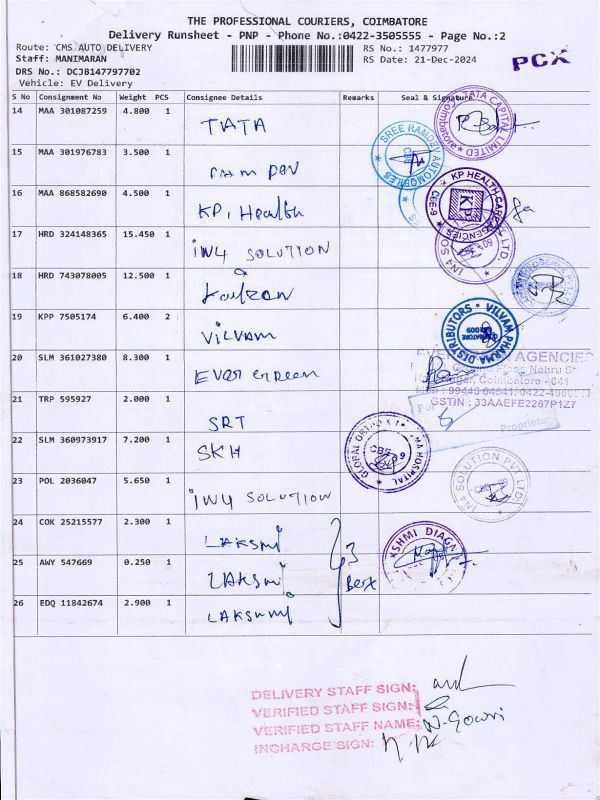 THE PROFESSIONAL COURIERS, COIMBATORE
Delivery Runsheet - PNP - Phone No.:0422-3505555 - Page No.:2
Route: CMS AUTO DELIVERY
Staff: MANIMARAN
DRS No.: DCJB147797702
Vehicle: EV Delivery
RS No.: 1477977
RS Date: 21-Dec-2024
PCX
S No Consignment No Weight PCS Consignee Details Remarks Seal & Signature
14 MAA 301087259 4.800 1 TATA
TATA CAPITAL LIMITED
Coimbatore
15 MAA 301976783 3.500 1
SREE RAMDEV AUTOMOBILES
CBE
16 MAA 868582690 4.500 1 KP. Health
KP HEALTH CARE AGENCIES
KP
CBE-9
17 HRD 324148365 15.450 1 IN4 SOLUTION
18 HRD 743078005 12.500 1
19 KPP 7505174 6.400 2 VILVAM
VILVAM PHARMA DISTRIBUTORS
20 SLM 361027380 8.300 1 EVER Green
AGENCIES
Floor, Nehru St
Coimbatore - 641
GSTIN : 33AAEFE2267P1Z7
Proprietor
21 TRP 595927 2.000 1 SRT
22 SLM 360973917 7.200 1 SKH
GLOBAL ORTHO & TRAUMA HOSPITAL
23 POL 2036047 5.650 1 IN4 SOLUTION
IN4 SOLUTION PVT LTD
24 COK 25215577 2.300 1 LAKSMI
25 AWY 547669 0.250 1 LAKSMI
3
Box
KSHMI DIAGN
26 EDQ 11842674 2.900 1 LAKSHMI
DELIVERY STAFF SIGN:
VERIFIED STAFF SIGN:
VERIFIED STAFF NAME: N. Gowri
INCHARGE SIGN: